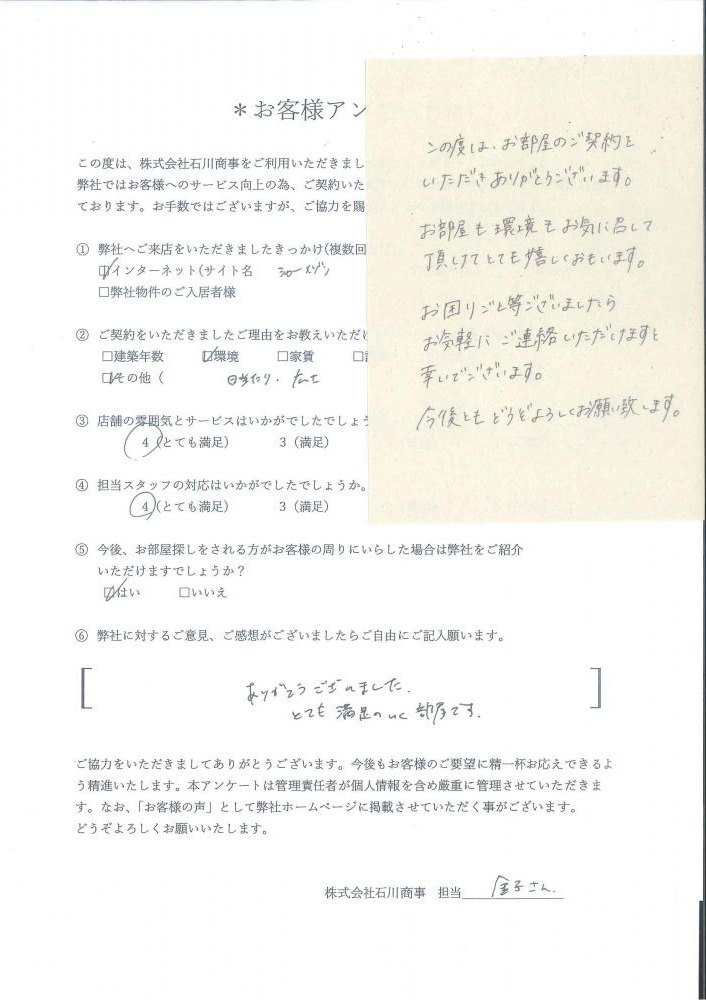 ＊お客様アン
この度は、株式会社石川商事をご利用いただきまし
弊社ではお客様へのサービス向上の為、ご契約いた
ております。お手数ではございますが、ご協力を賜
① 弊社へご来店をいただきましたきっかけ(複数回
☑インターネット(サイト名
□弊社物件のご入居者様
② ご契約をいただきましたご理由をお教えいただけ
□建築年数 ☑環境 □家賃 □
☑その他（ 日当たり、広さ
③ 店舗の雰囲気とサービスはいかがでしたでしょう
4（とても満足） 3（満足）
④ 担当スタッフの対応はいかがでしたでしょうか。
4（とても満足） 3（満足）
⑤ 今後、お部屋探しをされる方がお客様の周りにいらした場合は弊社をご紹介
いただけますでしょうか？
☑はい □いいえ
⑥ 弊社に対するご意見、ご感想がございましたらご自由にご記入願います。
ありがとうございました.
とても満足のいく部屋です.
ご協力をいただきましてありがとうございます。今後もお客様のご要望に精一杯お応えできるよ
う精進いたします。本アンケートは管理責任者が個人情報を含め厳重に管理させていただきま
す。なお、「お客様の声」として弊社ホームページに掲載させていただく事がございます。
どうぞよろしくお願いいたします。
株式会社石川商事 担当 金子さん.
この度は、お部屋のご契約を
いただきありがとうございます。
お部屋も環境もお気に召して
頂けてとても嬉しくおもいます。
お困りごと等ございましたら
お気軽にご連絡いただけますと
幸いでございます。
今後ともどうぞよろしくお願い致します。